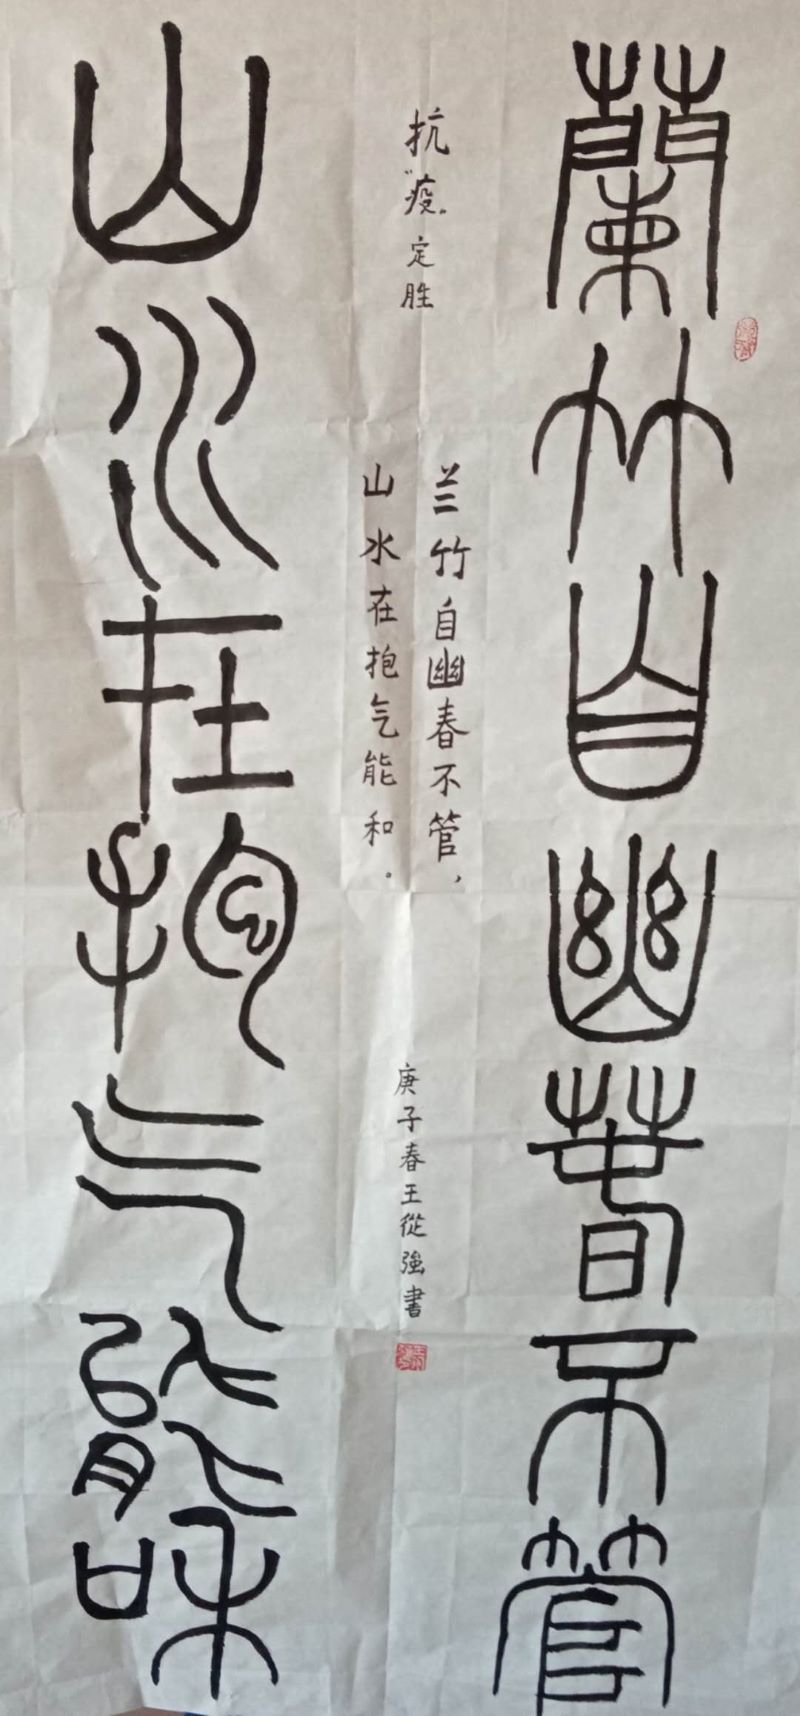 蘭竹自幽春不管
抗“疫”定胜
兰竹自幽春不管，
山水在抱气能和。
庚子春王從強書
山水在抱气能和